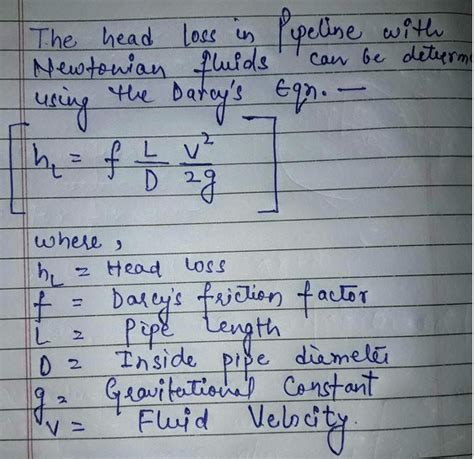 The head loss in Pipeline with
Newtonian fluids can be determ
using the Darcy's Eqn. —
[ h_L = f L/D V²/2g ]
where,
h_L = Head loss
f = Darcy's friction factor
L = Pipe Length
D = Inside pipe diameter
g = Gravitational Constant
V = Fluid Velocity.